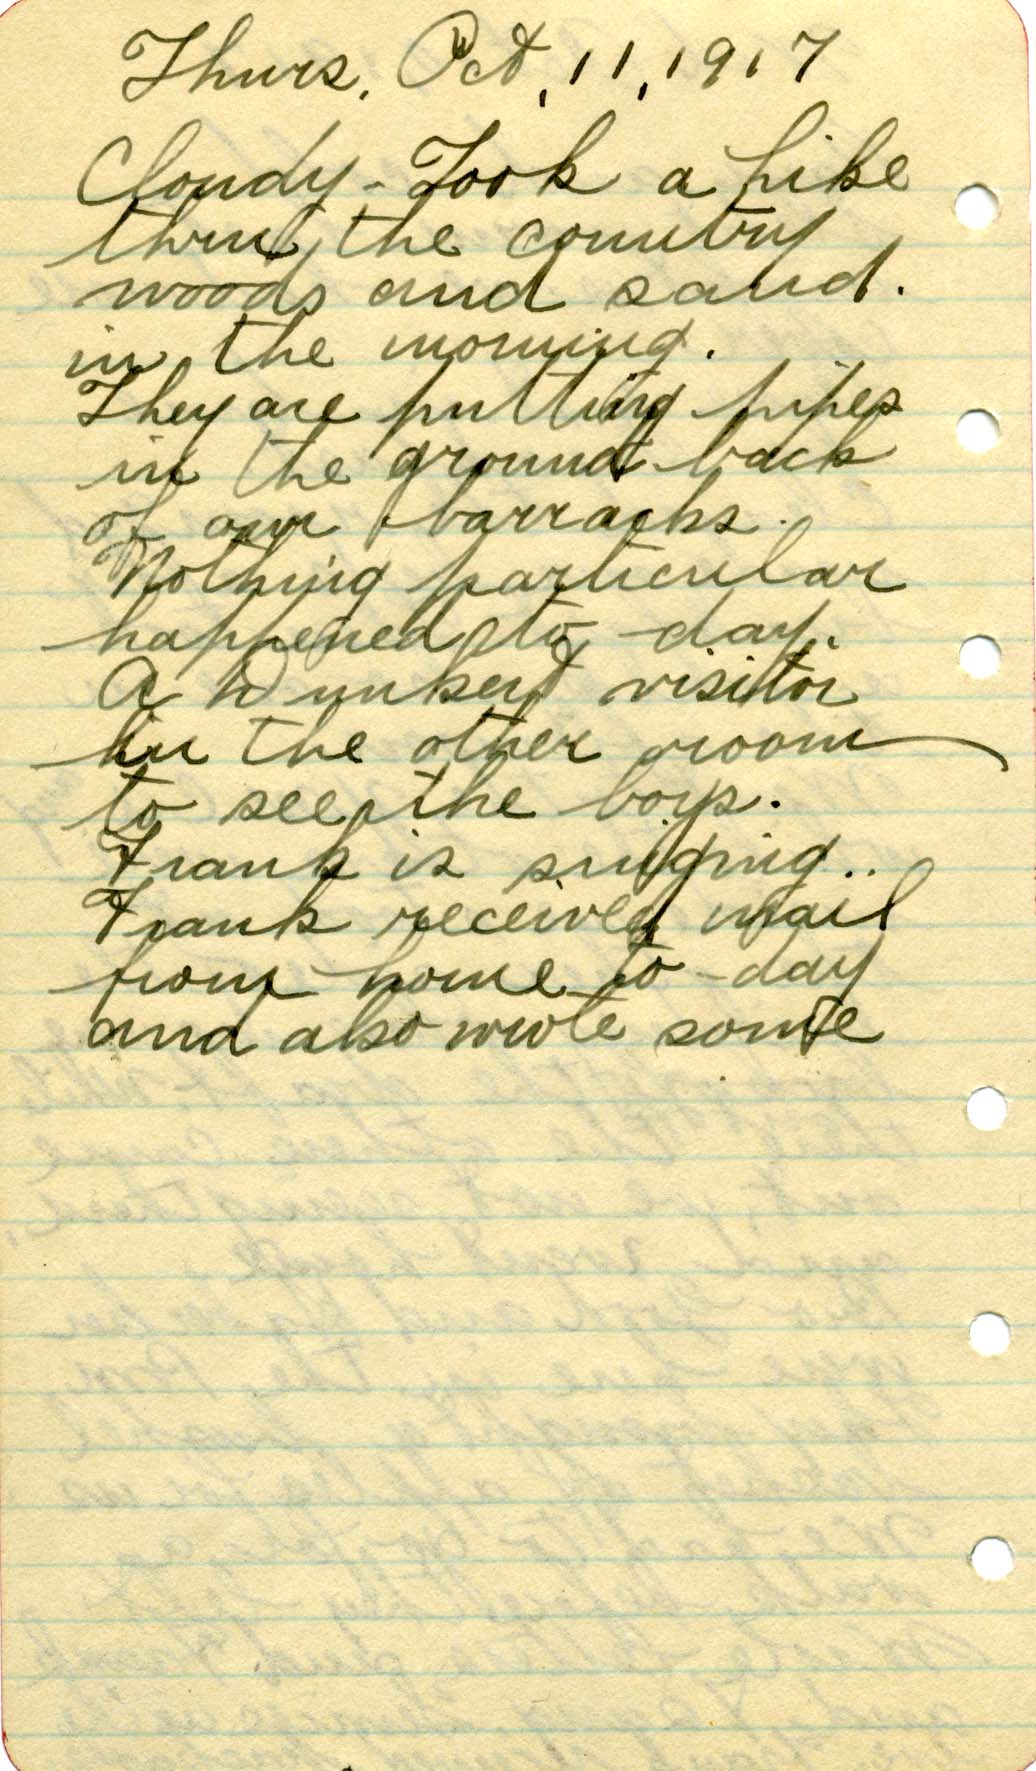 Thurs. Oct, 11, 1917
Cloudy - Took a hike
thru the country
woods and sand.
in the morning.
They are putting pipes
in the ground back
of our barracks.
Nothing particular
happened to day.
A Dunkerd visitor
in the other room
to see the boys.
Frank is singing..
Frank received mail
from home to-day
and also wrote some